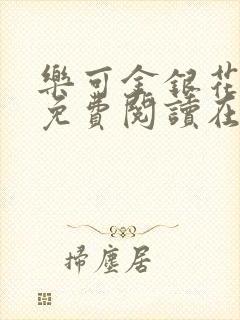 樂可金銀花
免費閱讀在
掃塵居